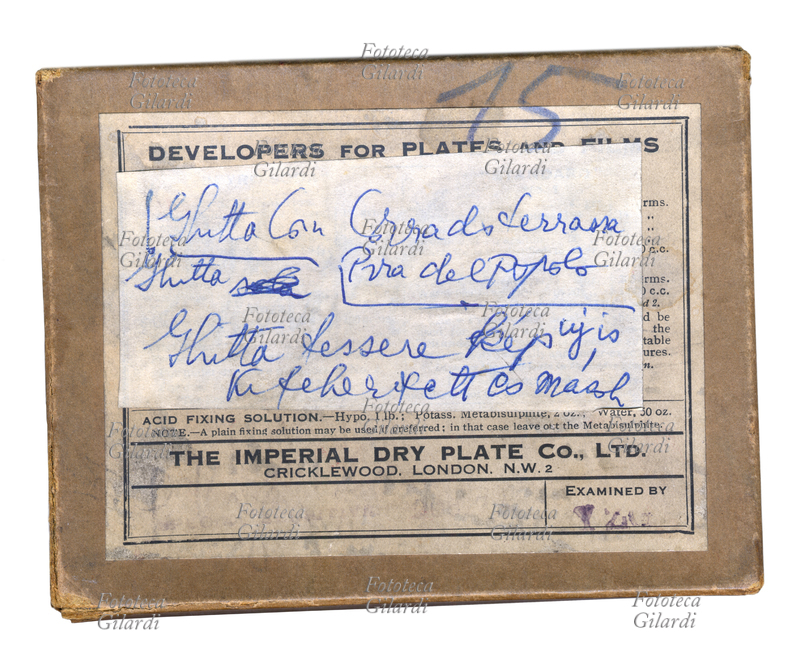 15
DEVELOPERS FOR PLATES AND FILMS
Ghitta Con Corrado terrassa
Ghitta
Pzza del Popolo
Ghitta tessere
és
rms.
c.c.
rms.
c.c.
d 2.
d be
the
table
ures.
ACID FIXING SOLUTION.—Hypo, 1 lb.; Potass. Metabisulphite, 2 oz.; Water, 30 oz.
NOTE.—A plain fixing solution may be used if preferred; in that case leave out the Metabisulphite.
THE IMPERIAL DRY PLATE Co., LTD.
CRICKLEWOOD, LONDON, N.W.2
EXAMINED BY
Fototeca Gilardi